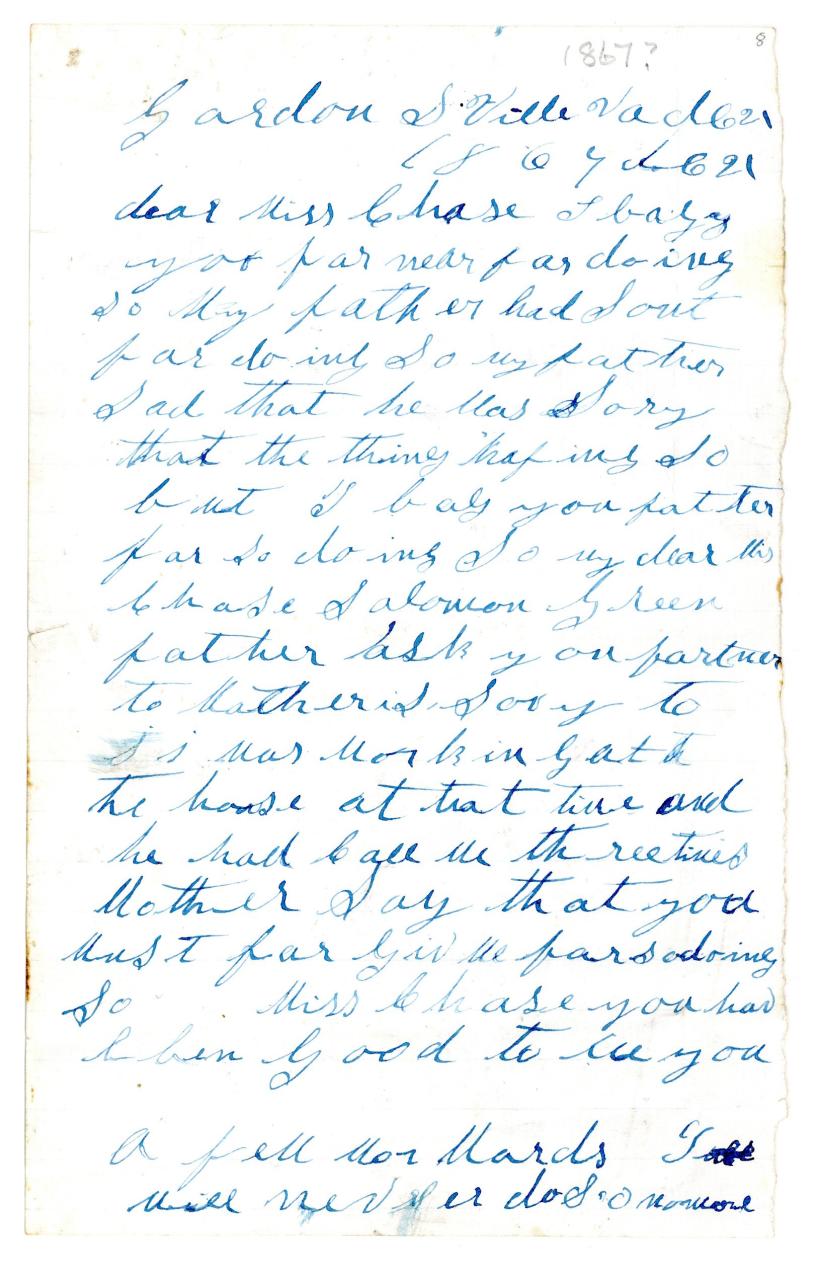 8
1867?
Gardon S Ville Va d621
1867 d 621
dear Miss Chase I bagg
you far near far doing
so My father had Sout
far doing So my father
Sad that he Was Sory
that the thing hap ing So
but I bag you fatter
far So doing So my dear Mis
Chase Salomon Green
father ask you partner
to Mother is Sory to
is was Workin gat t
he house at that time and
he had Call Me threetimes
Mother Say that you
Must far Giv Me farsodoing
So Miss Chase you hav
e ben Good to Me you
A fell Mor Wards I
will never do So nomore